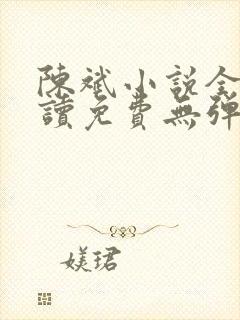 陳斌小說全
讀免費無彈
媄珺